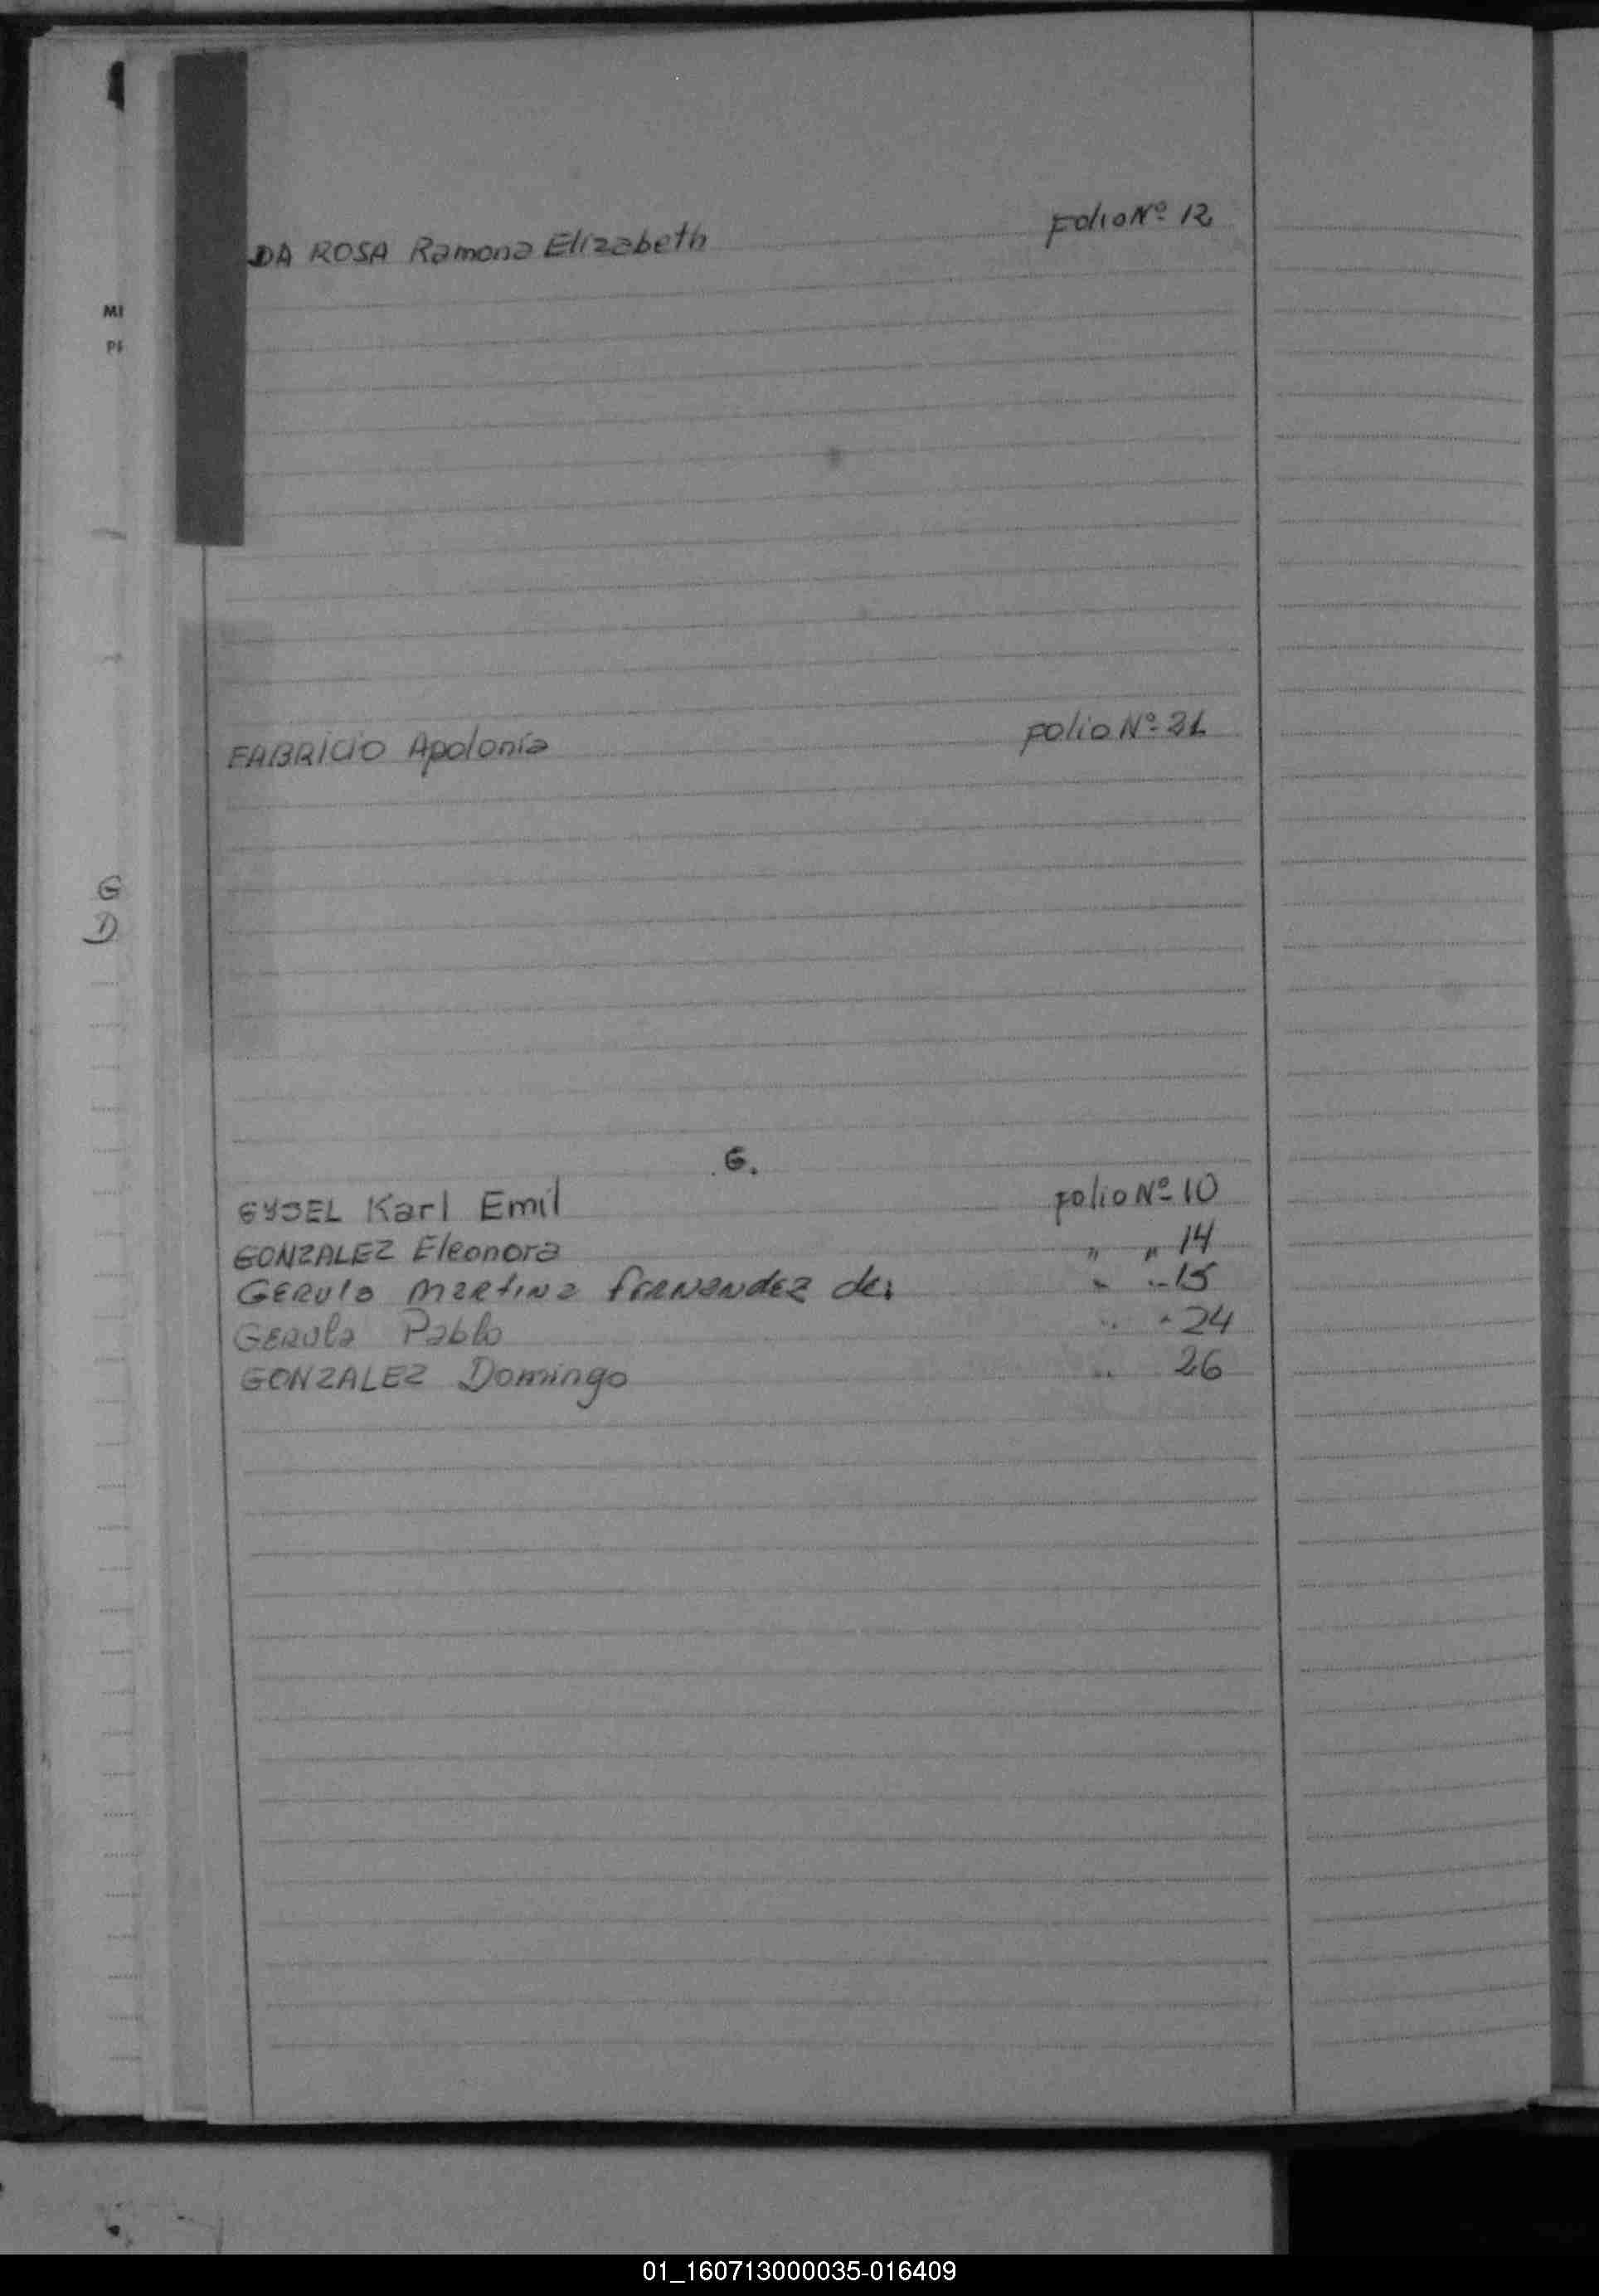 DA ROSA Ramona Elizabeth Folio Nº 12
MI
PI
FABRICIO Apolonia Folio Nº 31
G
D
G.
GYSEL Karl Emil Folio Nº 10
GONZALEZ Eleonora " " 14
GERULA Martina FERNANDEZ de: " " 15
GERULA Pablo " " 24
GONZALEZ Domingo " 26
01_160713000035-016409